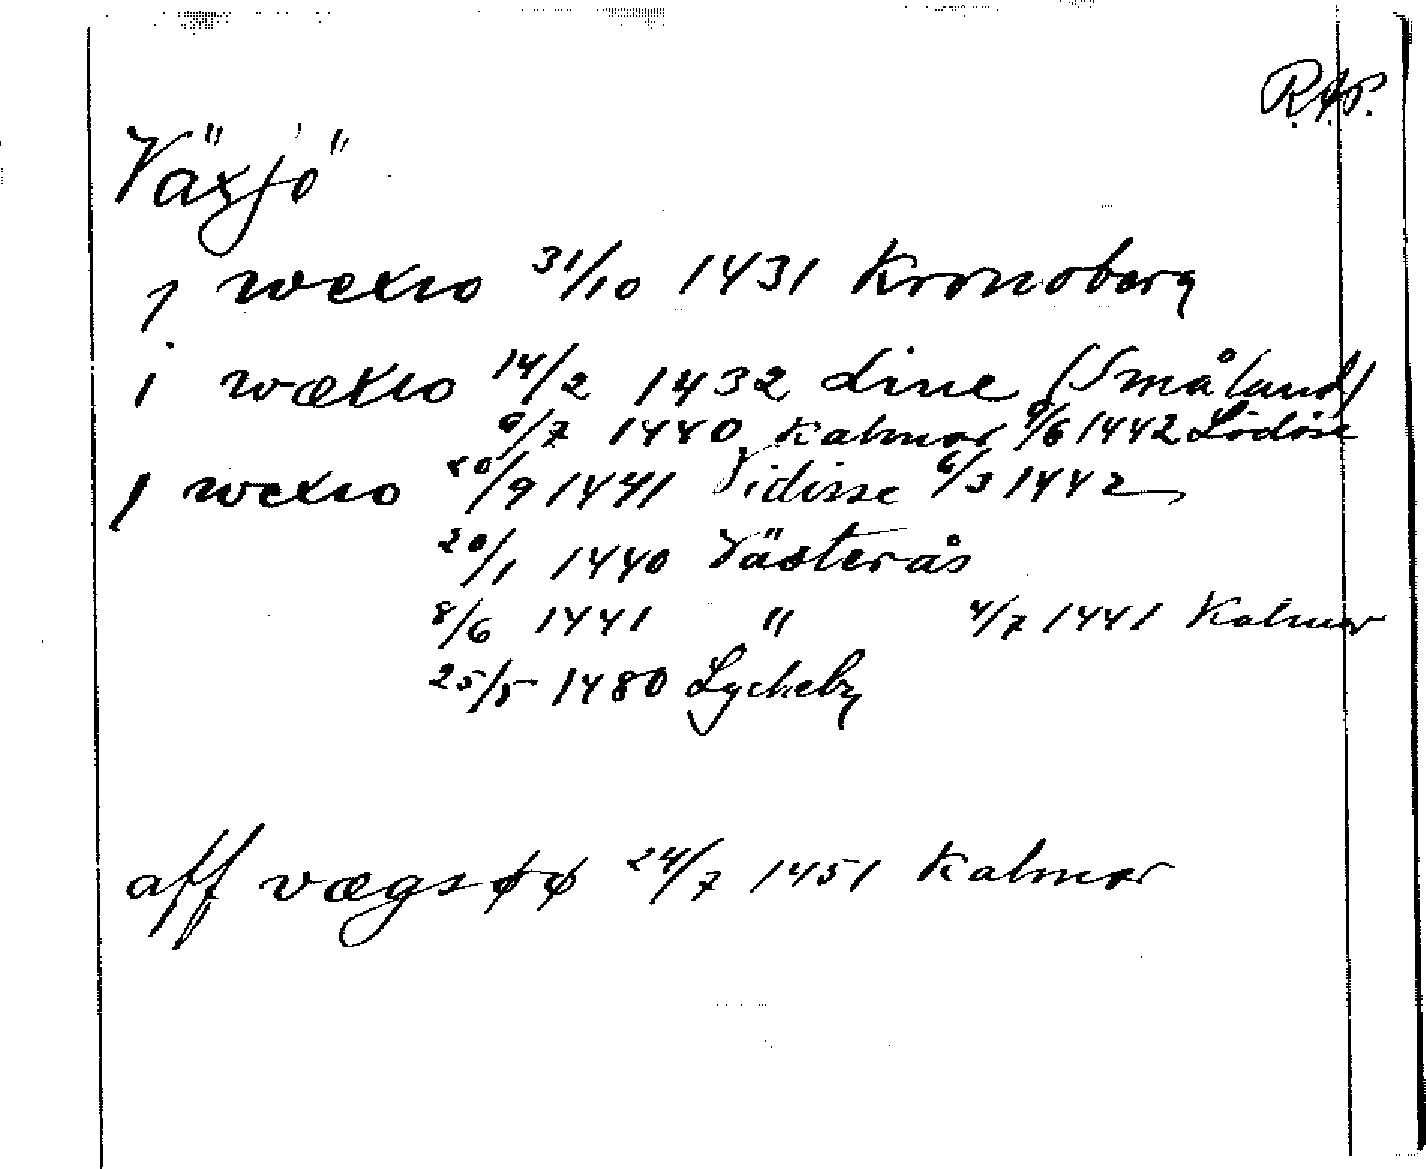 R.A.P.
Växjö
j wexio 31/10 1431 Kronoberg
i wæxio 14/2 1432 Line (Småland)
6/7 1440 Kalmar 9/6 1442 Lödöse
j wexio 20/9 1441 Vidisse 6/3 1442
20/1 1440 Västerås
8/6 1441 " 4/7 1441 Kalmar
25/5 1480 Lyckeby
aff vægsøø 24/7 1451 Kalmar